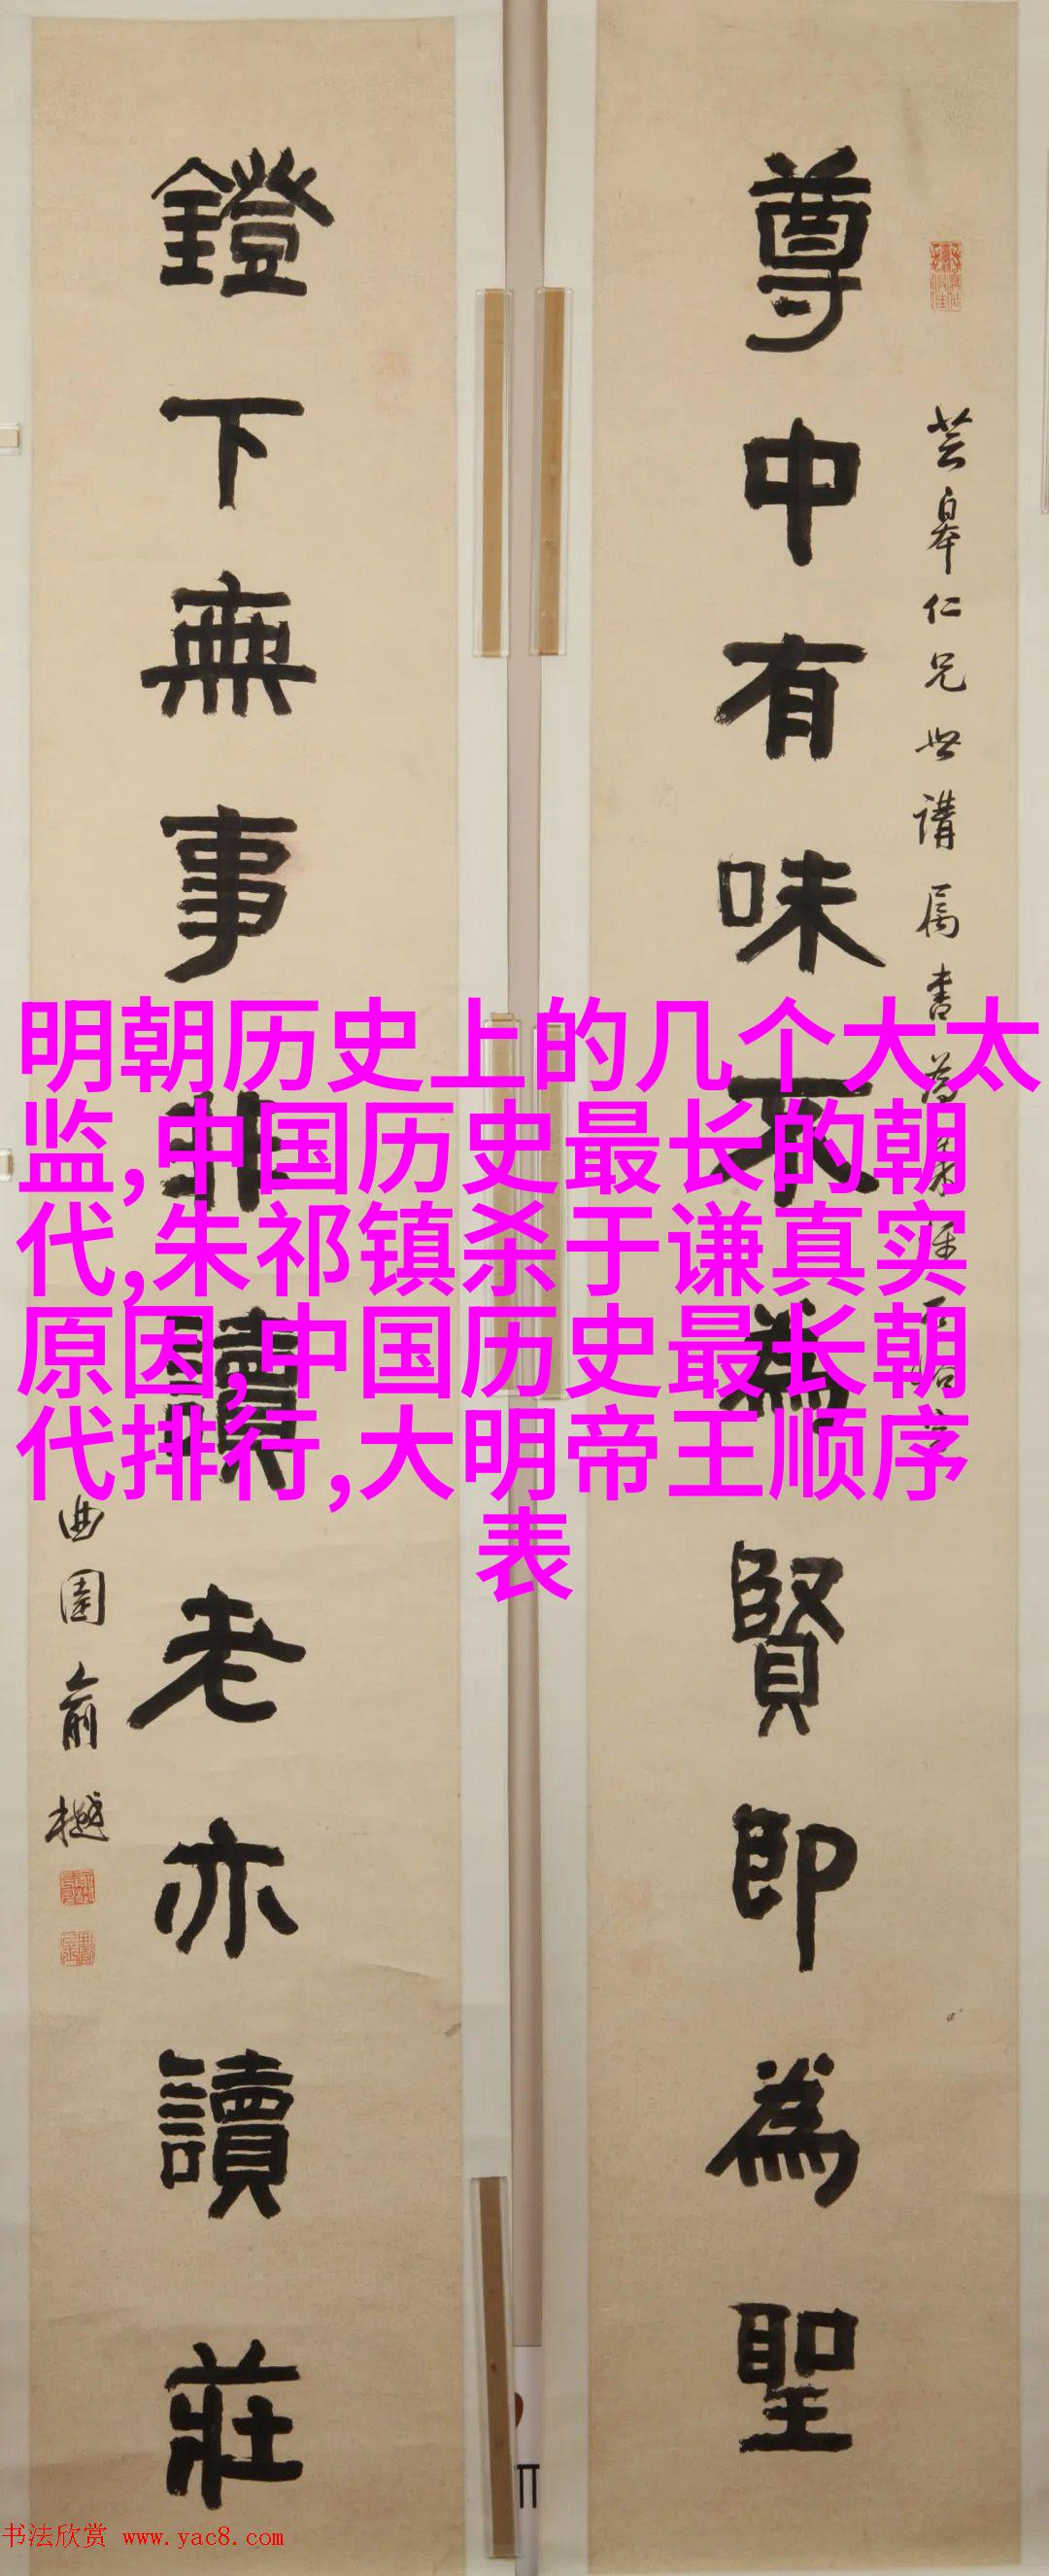 尊中有味不為賢即為聖
芸皋仁兄世講属書
鐙下無事非讀老亦讀莊
曲園俞樾
明朝历史上的几个大太
监,中国历史最长的朝
代,朱祁镇杀于谦真实
原因,中国历史最长朝
代排行,大明帝王顺序
表
书法欣赏 www.yac8.com